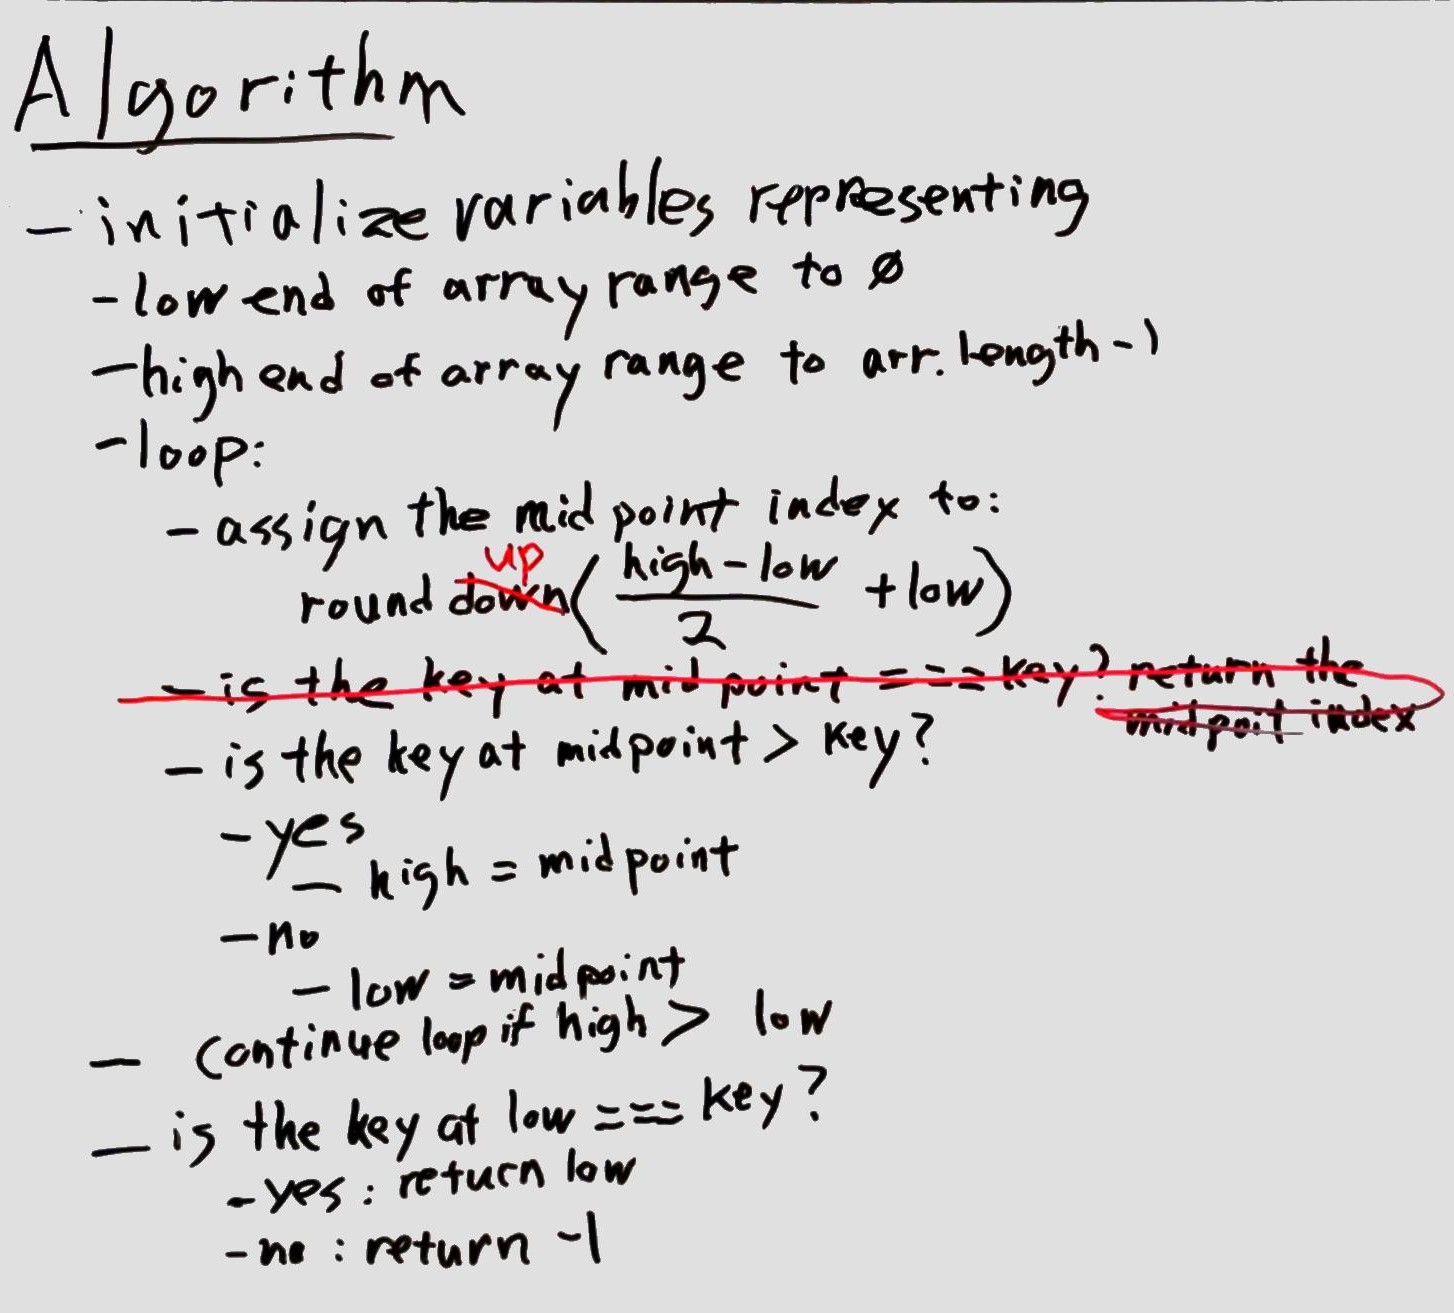 Algorithm
- initialize variables representing
- low end of array range to 0
- high end of array range to arr.length-1
- loop:
- assign the midpoint index to:
up
round down( high - low / 2 + low)
- is the key at midpoint === key? return the
midpoit index
- is the key at midpoint > key?
- yes
- high = midpoint
- no
- low = midpoint
- continue loop if high > low
- is the key at low === key?
- yes: return low
- no: return -1